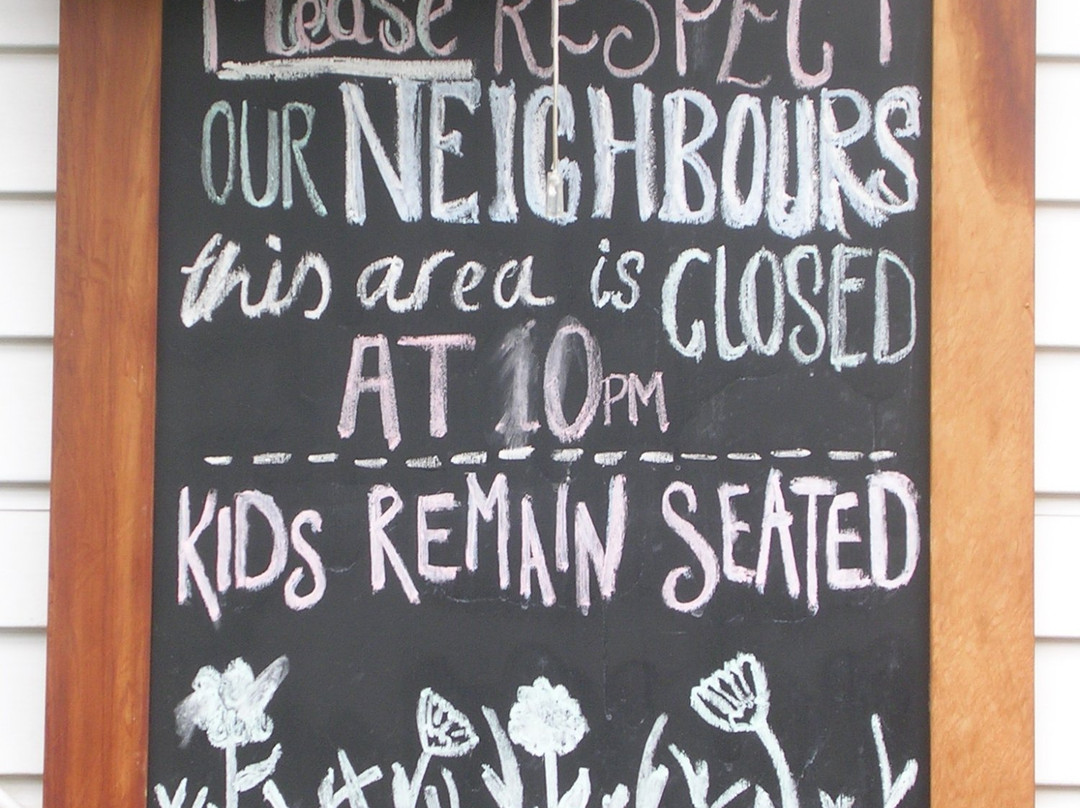 Please RESPECT
OUR NEIGHBOURS
this area is CLOSED
AT 10PM
KIDS REMAIN SEATED